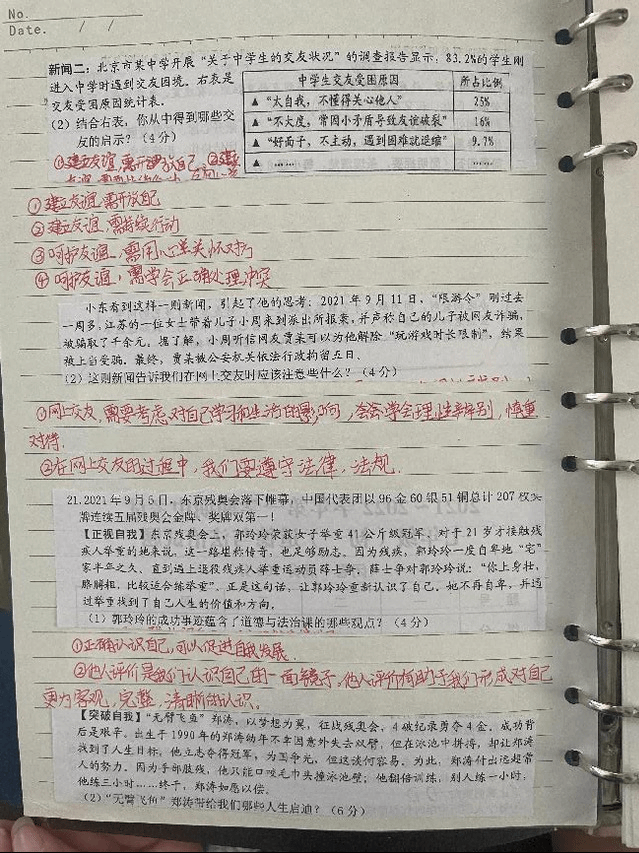 No.
Date. / /
新闻二：北京市某中学开展“关于中学生的交友状况”的调查报告显示，83.2%的学生刚
进入中学时遇到交友困境。右表是
交友受困原因统计表。
（2）结合右表，你从中得到哪些交
友的启示？（4分）
中学生交友受困原因 所占比例
▲“太自我，不懂得关心他人” 25%
▲“不大度，常因小矛盾导致友谊破裂” 16%
▲“好面子，不主动，遇到困难就退缩” 9.7%
▲…… ……
①建立友谊，需开放自己 ②建立
①建立友谊，需开放自己
②建立友谊，需持续行动
③呵护友谊，需用心去关怀对方
④呵护友谊，需学会正确处理冲突
小东看到这样一则新闻，引起了他的思考：2021年9月11日，“限游令”刚过去
一周多，江苏的一位女士带着儿子小周来到派出所报案，并声称自己的儿子被网友诈骗，
被骗取了千余元。据了解，小周听信网友贾某可以为他解除“玩游戏时长限制”，结果
被上当受骗。最终，贾某被公安机关依法行政拘留五日。
（2）这则新闻告诉我们在网上交友时应该注意些什么？（4分）
①网上交友，需要考虑对自己学习和生活的影响，会学会理性辨别，慎重
对待.
②在网上交友的过程中，我们要遵守法律，法规.
21.2021年9月5日，东京残奥会落下帷幕，中国代表团以96金60银51铜总计207枚奖
牌连续五届残奥会金牌、奖牌双第一！
【正视自我】东京残奥会上，郭玲玲荣获女子举重41公斤级冠军。对于21岁才接触残
疾人举重的她来说，这一路堪称传奇，也足够励志。因为残疾，郭玲玲一度自卑地“宅”
家半年之久，直到遇上退役残疾人举重运动员薛士争。薛士争对郭玲玲说：“你上身壮，
胳膊粗，比较适合练举重”。正是这句话，让郭玲玲重新认识了自己，她不再自卑，并透
过举重找到了自己人生的价值和方向。
（1）郭玲玲的成功事迹蕴含了道德与法治课的哪些观点？（4分）
①正确认识自己，可以促进自我发展.
②他人评价是我们认识自己的一面镜子，他人评价有助于我们形成对自己
更为客观，完整，清晰的认识。
【突破自我】“无臂飞鱼”郑涛，以梦想为翼，征战残奥会，4破纪录勇夺4金。成功背
后是艰辛。出生于1990年的郑涛幼年不幸因意外失去双臂，但在泳池中拼搏，却让郑涛
找到了人生目标，他立志夺得冠军，为国争光，但这谈何容易，为此，郑涛付出远超常
人的努力。因为手部肢残，他只能口咬毛巾头撞泳池壁；他翻倍训练，别人练一小时，
他练三小时……终于，郑涛如愿以偿。
（2）“无臂飞鱼”郑涛带给我们哪些人生启迪？（6分）